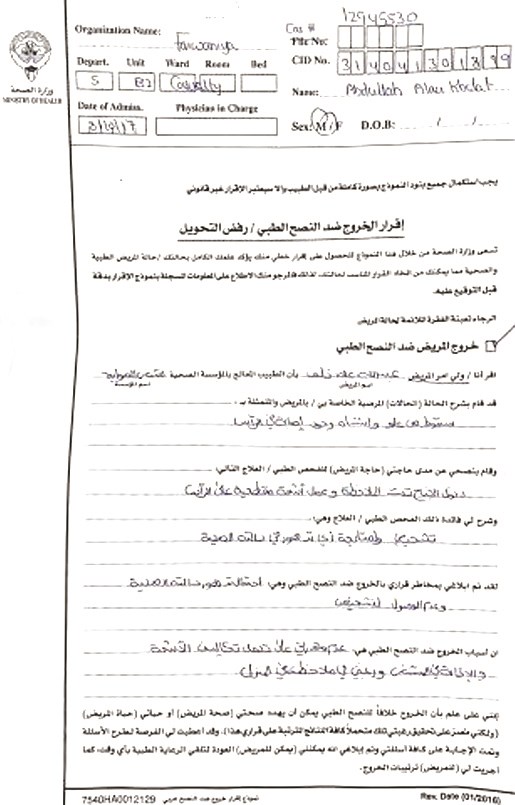 وزارة الصحة
MINISTRY OF HEALTH
Organization Name: Farwaniya
Depart. Unit Ward Room Bed
5 B2 Casualty
Date of Admin. Physician in Charge
3/10/17
Cas #
12945530
File No:
CID No. 314041301399
Name: Abdullah Alaa Khalaf
Sex: M/F D.O.B: / /
يجب استكمال جميع بنود النموذج بصورة كاملة من قبل الطبيب والا سيعتبر الإقرار غير قانوني
إقرار الخروج ضد النصح الطبي / رفض التحويل
تسعى وزارة الصحة من خلال هذا النموذج للحصول على إقرار خطي منك يؤكد علمك الكامل بحالتك / حالة المريض الطبية
والصحية مما يمكنك من اتخاذ القرار المناسب لحالتك، لذلك فالمرجو منك الاطلاع على المعلومات المسجلة بنموذج الإقرار بدقة
قبل التوقيع عليه.
الرجاء تعبئة الفقرة الملائمة لحالة المريض
خروج المريض ضد النصح الطبي
اقر أنا / ولي امر المريض عبدالله علاء خلف بأن الطبيب المعالج بالمؤسسة الصحية
اسم المريض اسم المؤسسة
قد قام بشرح الحالة (الحالات) المرضية الخاصة بي / بالمريض والمتمثلة بـ
سقوط من علو واشتباه وجود إصابة في الرأس
وقام بنصحي عن مدى حاجتي (حاجة المريض) للفحص الطبي / العلاج التالي:
دخول الجناح تحت الملاحظة وعمل أشعة مقطعية على الرأس
وشرح لي فائدة ذلك الفحص الطبي / العلاج وهي:
تشخيص ومتابعة أي تدهور في حالته الصحية
لقد تم ابلاغي بمخاطر قراري بالخروج ضد النصح الطبي وهي: احتمال تدهور حالته الصحية
وعدم الوصول لتشخيص
ان أسباب الخروج ضد النصح الطبي هي: عدم قدرتي على تحمل تكاليف الأشعة
والإقامة في المستشفى ورغبتي في ملاحظته في المنزل
إنني على علم بأن الخروج خلافاً للنصح الطبي يمكن أن يهدد صحتي (صحة المريض) أو حياتي (حياة المريض)
(ولكني مصر على تحقيق رغبتي تلك متحملاً كافة النتائج المترتبة على قراري هذا). وقد أعطيت لي الفرصة لطرح الأسئلة
وتمت الإجابة على كافة أسئلتي وتم إبلاغي انه يمكنني (يمكن للمريض) العودة لتلقي الرعاية الطبية بأي وقت، كما
أجريت لي (للمريض) ترتيبات الخروج.
7540HA0012129 نموذج إقرار خروج ضد النصح الطبي Rev. Date (01/2016)